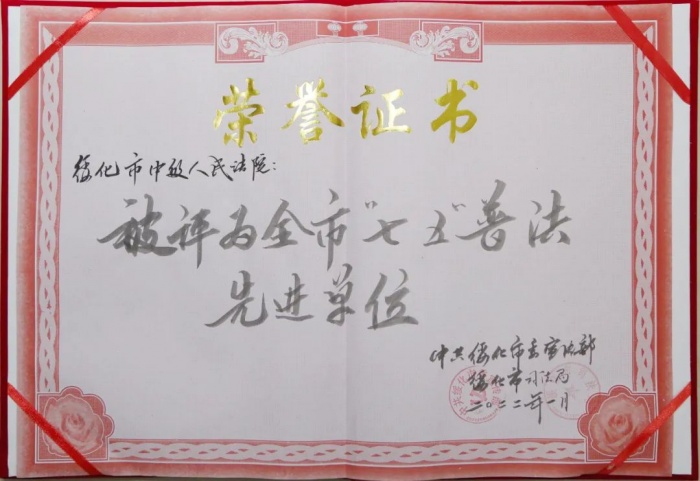 荣誉证书
绥化市中级人民法院：
被评为全市“七五”普法
先进单位
中共绥化市委宣传部
绥化市司法局
二〇二二年一月